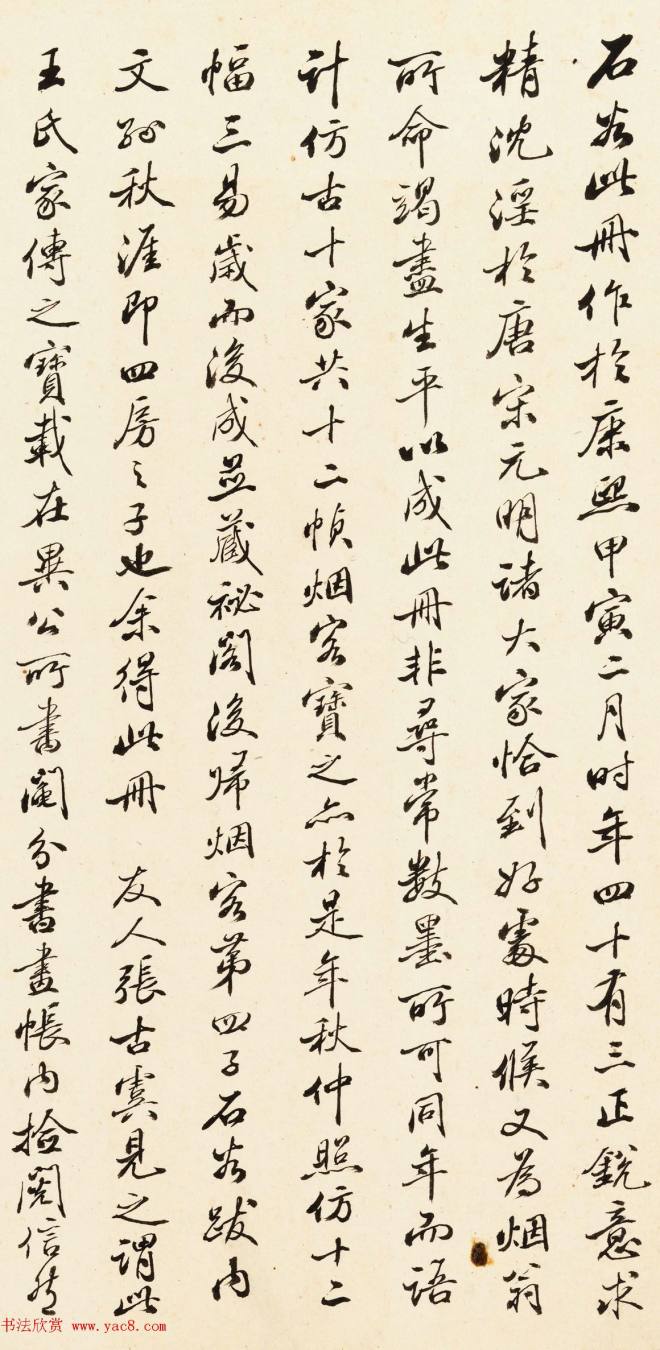 石谷此冊作於康熙甲寅二月时年四十有三正銳意求
精沈淫於唐宋元明諸大家恰到好處時候又為烟翁
所命竭盡生平以成此冊非尋常數墨所可同年而語
計仿古十家共十二幀烟客寶之亦於是年秋仲照仿十二
幅三易歲而後成並藏祕閣後歸烟客第四子石谷跋內
文孫秋涯即四房之子也余得此冊 友人張古虞見之謂此
王氏家傳之寶載在異公所書鬮分書畫帳內撿閱信然
书法欣赏 www.yac8.com